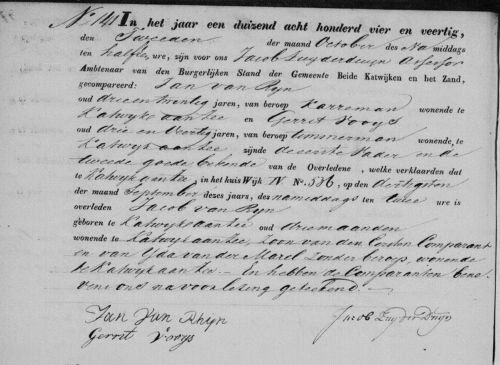 No. 141 In het jaar een duizend acht honderd vier en veertig,
den Tweeden der maand October des Na middags
ten half ure, zijn voor ons Jacob Zuyderduyn Assessor
Ambtenaar van den Burgerlijken Stand der Gemeente Beide Katwijken en het Zand,
gecompareerd: Jan van Ryn
oud drie en twintig jaren, van beroep Karreman wonende te
Katwyk aan Zee en Gerrit Vooys
oud drie en Veertig jaren, van beroep timmerman wonende, te
Katwyk aan Zee zijnde de eerste Vader en de
tweede goede bekende van de Overledene, welke verklaarden dat
te Katwyk aan Zee, in het huis Wijk IV No. 536, op den dertigsten
der maand September dezes jaars, des nameddags ten twee ure is
overleden Jacob van Ryn
geboren te Katwyk aan Zee oud drie maanden
wonende te Katwyk aan Zee, Zoon van den Eersten Comparant
en van Yda van der Marel zonder beroep, wonende
te Katwyk aan Zee – En hebben de Comparanten bene
vens ons na voorlezing geteekend.
Jan Van Rhyn
Jacob Zuyder Duyn
Gerrit Vooys